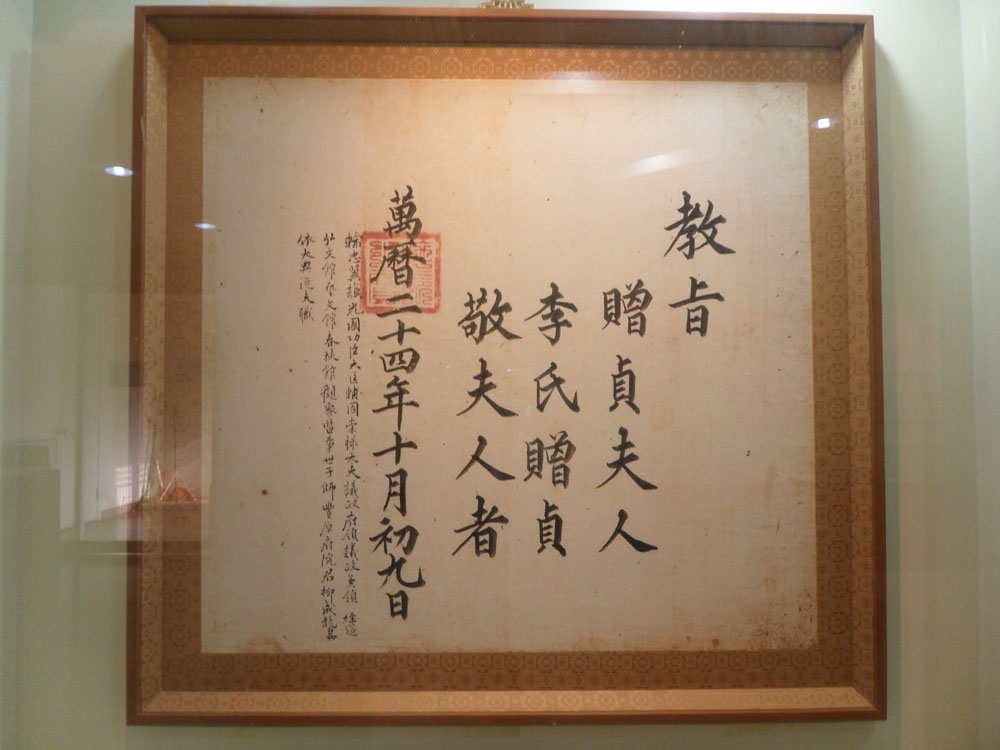 教旨
贈貞夫人
李氏贈貞
敬夫人者
萬曆二十四年十月初九日
輸忠翼謨光國功臣大匡輔國崇祿大夫議政府領議政兼領 經筵
弘文館藝文館春秋館觀象監事世子師豐原府院君柳成龍妻
依大典從夫職